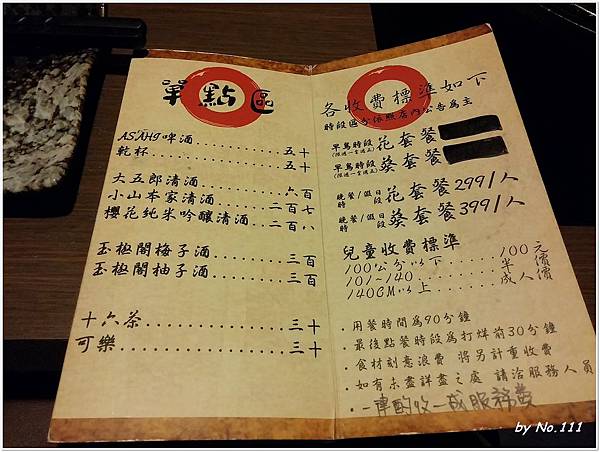 單點區
ASAHI啤酒..........五十
乾杯..........五十
大五郎清酒..........六百
小山本家清酒..........二百七
櫻花純米吟釀清酒....二百八
玉極閣梅子酒..........三百
玉極閣柚子酒..........三百
十六茶..........三十
可樂..........三十
各收費標準如下
時段區分依照店內公告為主
早鳥時段 花套餐
早鳥時段 葵套餐
晚餐/假日時段 花套餐299/人
晚餐/假日時段 葵套餐399/人
兒童收費標準
100公分以下.......100元
101-140..........半價
140CM以上.......成人價
·用餐時間為90分鐘
·最後點餐時段為打烊前30分鐘
·食材刻意浪費 將另計重收費
·如有未盡詳盡之處 請洽服務人員
·一律酌收一成服務費
by No.111